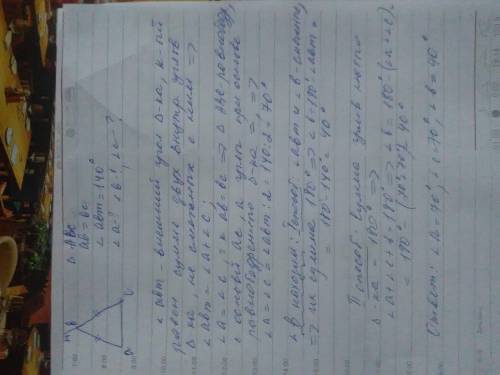 △ ABC
ab = bc
∠ abm = 140°
∠a? ∠b?, ∠c - ?
m
B
a
c
∠ abm - внешний угол △-ка, к-ый
равен сумме двух внутр. углов
△-ка, не смежных с ним =>
∠abm = ∠a + ∠c ;
∠a = ∠c, т.к ab = bc => △ ABC равнобедр,
с основ ac, а углы при основе
равнобедренного △-ка = =>
∠a = ∠c = ∠abm : 2 = 140 : 2 = 70°
∠B находим: I способ: ∠abm и ∠b - смежные,
=> их сумма 180° => ∠b = 180° - ∠abm =
= 180 - 140° = 40°
II способ: Сумма углов любого
△-ка = 180° =>
∠a + ∠c + ∠b = 180° => ∠b = 180° - (∠a + ∠c) =
= 180° - (70° + 70°) = 40°
Ответ: ∠a = 70°, ∠c = 70°, ∠b = 40°